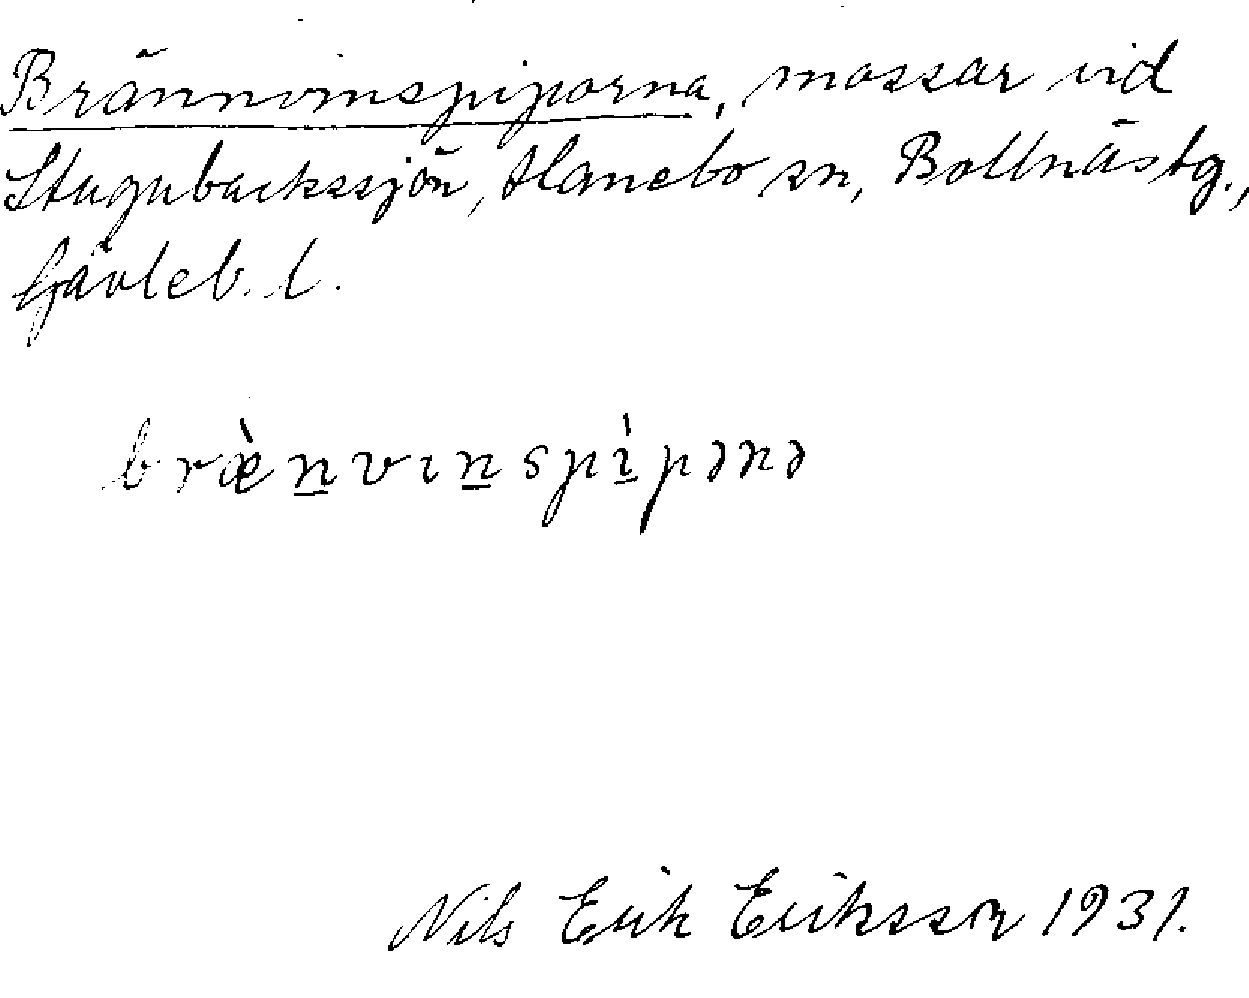 Brännvinspiporna, mossar vid
Stugubackssjön, Hanebo sn, Bollnäs tg.,
Gävleb. l.
bræ̀n̲vın̲spı̲̀pənə
Nils Erik Eriksson 1931.